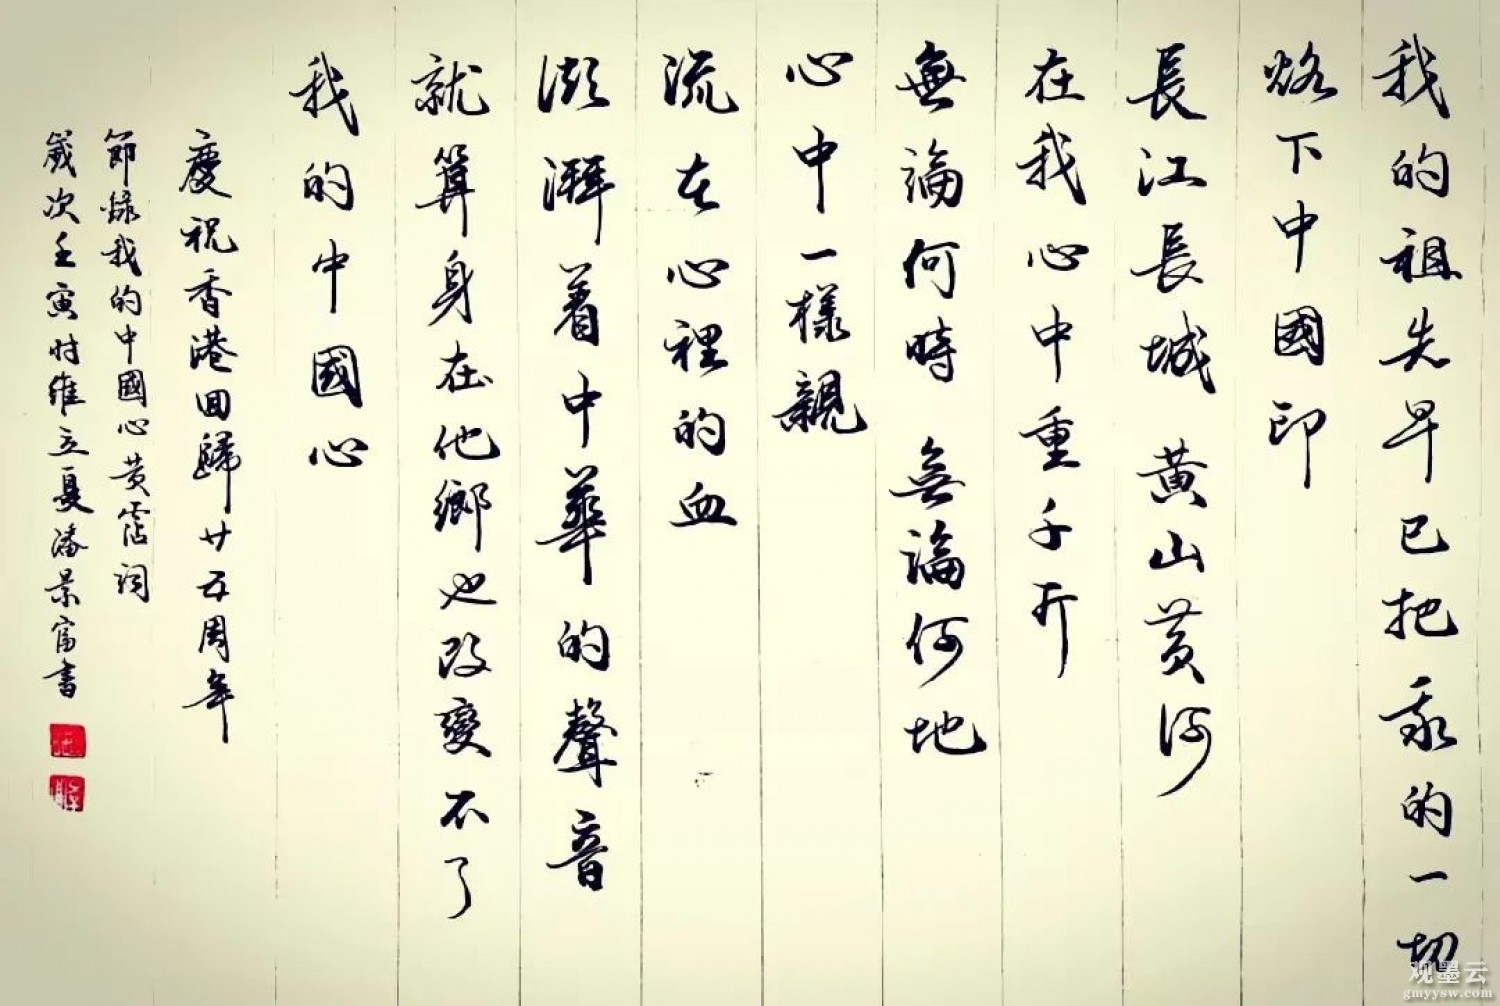 我的祖先早已把我的一切
烙下中國印
長江長城 黄山黄河
在我心中重千斤
無論何時 無論何地
心中一樣親
流在心裡的血
澎湃着中華的聲音
就算身在他鄉也改變不了
我的中國心
慶祝香港回歸廿五周年
節録我的中國心黄霑詞
歲次壬寅时維立夏潘景富書
观墨云
gmyysw.com